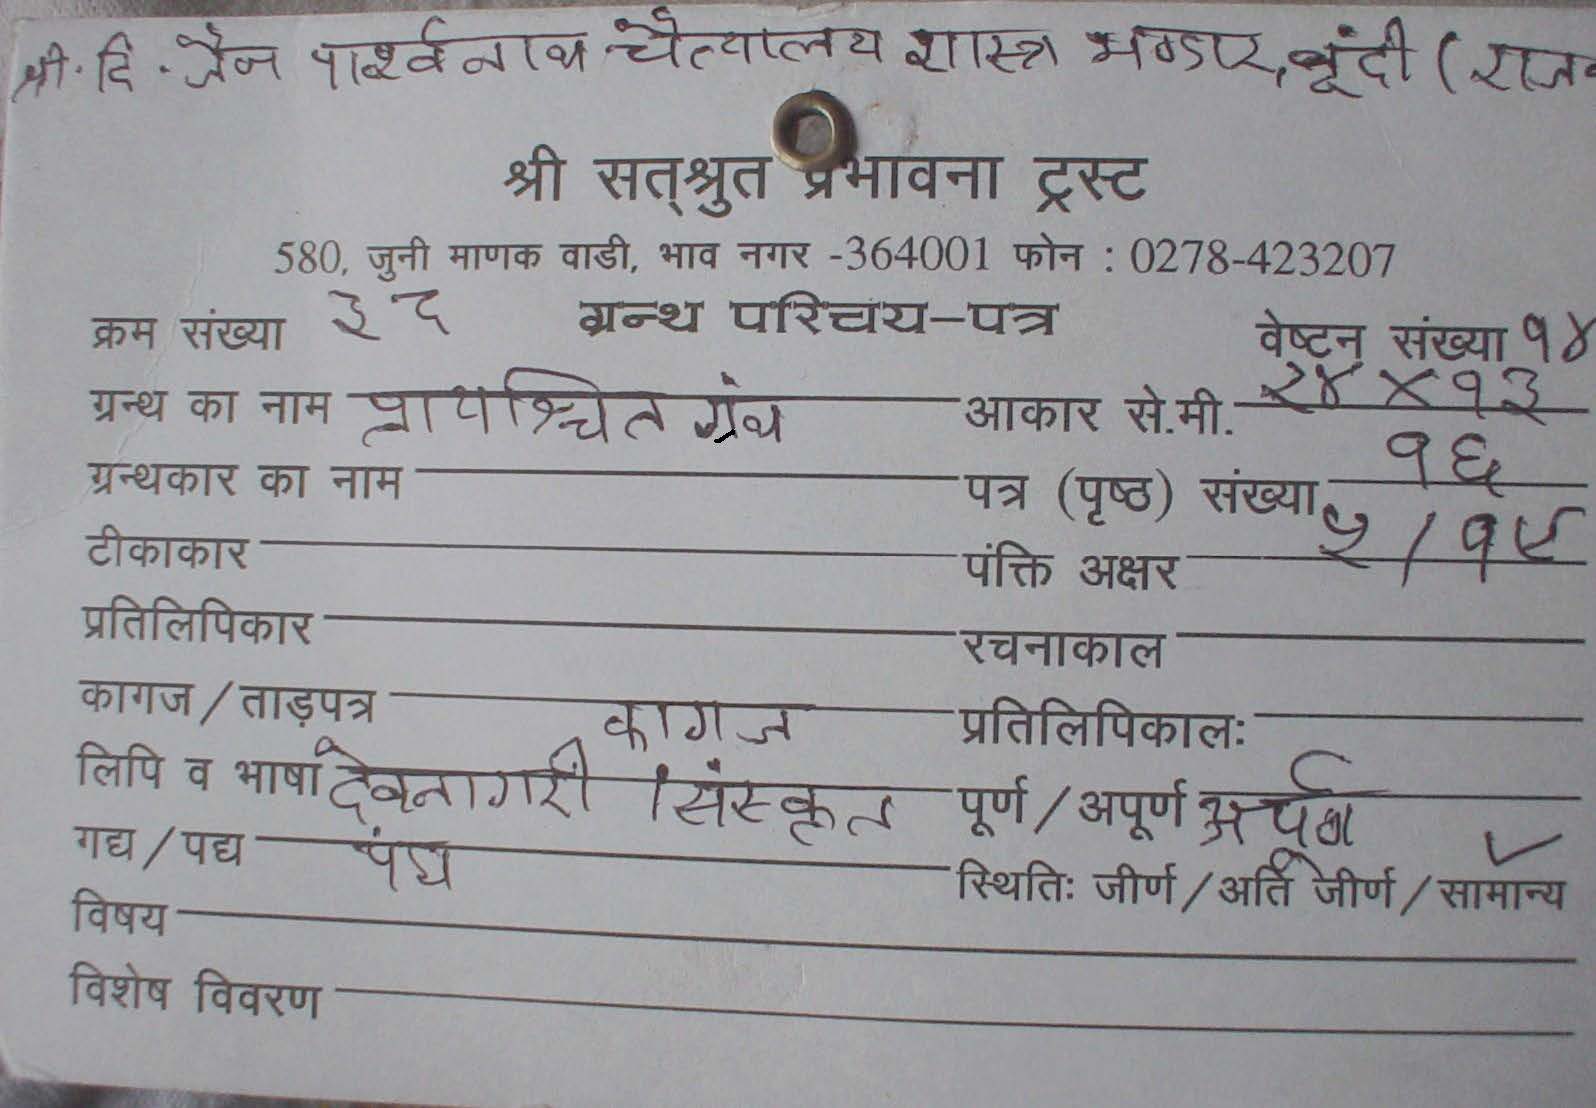 श्री. दि. जैन पार्श्वनाथ चैत्यालय शास्त्र भण्डार, बूंदी (राज॰
श्री सत्श्रुत प्रभावना ट्रस्ट
580, जुनी माणक वाडी, भाव नगर -364001 फोन : 0278-423207
क्रम संख्या ३८ ग्रन्थ परिचय-पत्र वेष्टन संख्या १४
ग्रन्थ का नाम प्रायश्चित ग्रंथ आकार से.मी. २४ × १३
ग्रन्थकार का नाम पत्र (पृष्ठ) संख्या १६
टीकाकार पंक्ति अक्षर ५ / १९
प्रतिलिपिकार रचनाकाल
कागज / ताड़पत्र कागज प्रतिलिपिकालः
लिपि व भाषा देवनागरी / संस्कृत पूर्ण / अपूर्ण अपूर्ण
गद्य / पद्य पद्य स्थितिः जीर्ण / अति जीर्ण / सामान्य ✓
विषय
विशेष विवरण